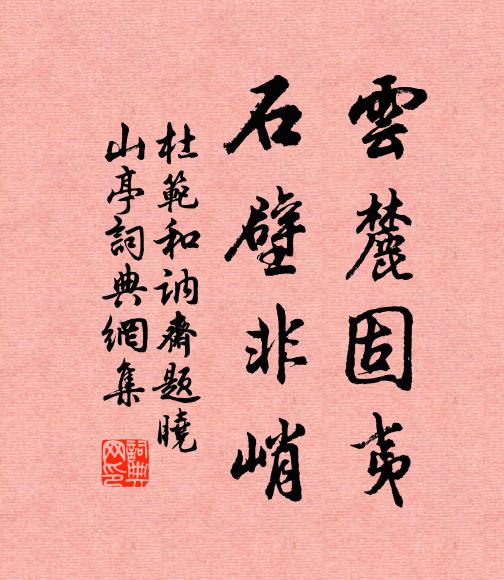 雲麓固夷
石壁非峭
杜範和訥齋題曉
山亭詞典網集
詞典網印